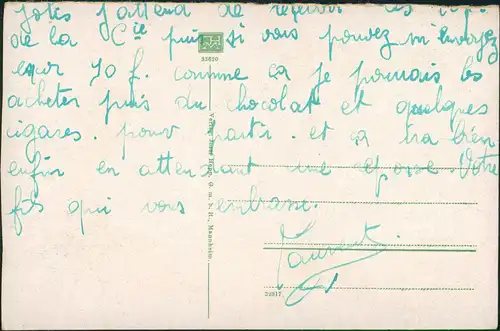 jotes j'attend de recevoir les
de la Cie puis si vous pouvez m'envoyez
pour 70 f. comme ça je pourrais les
acheter puis du chocolat et quelques
cigares. pour partir. et ça ira bien
enfin en attendant une reponse. Votre
fils qui vous embrasse.
Laurent
32620
Mannheim
24817